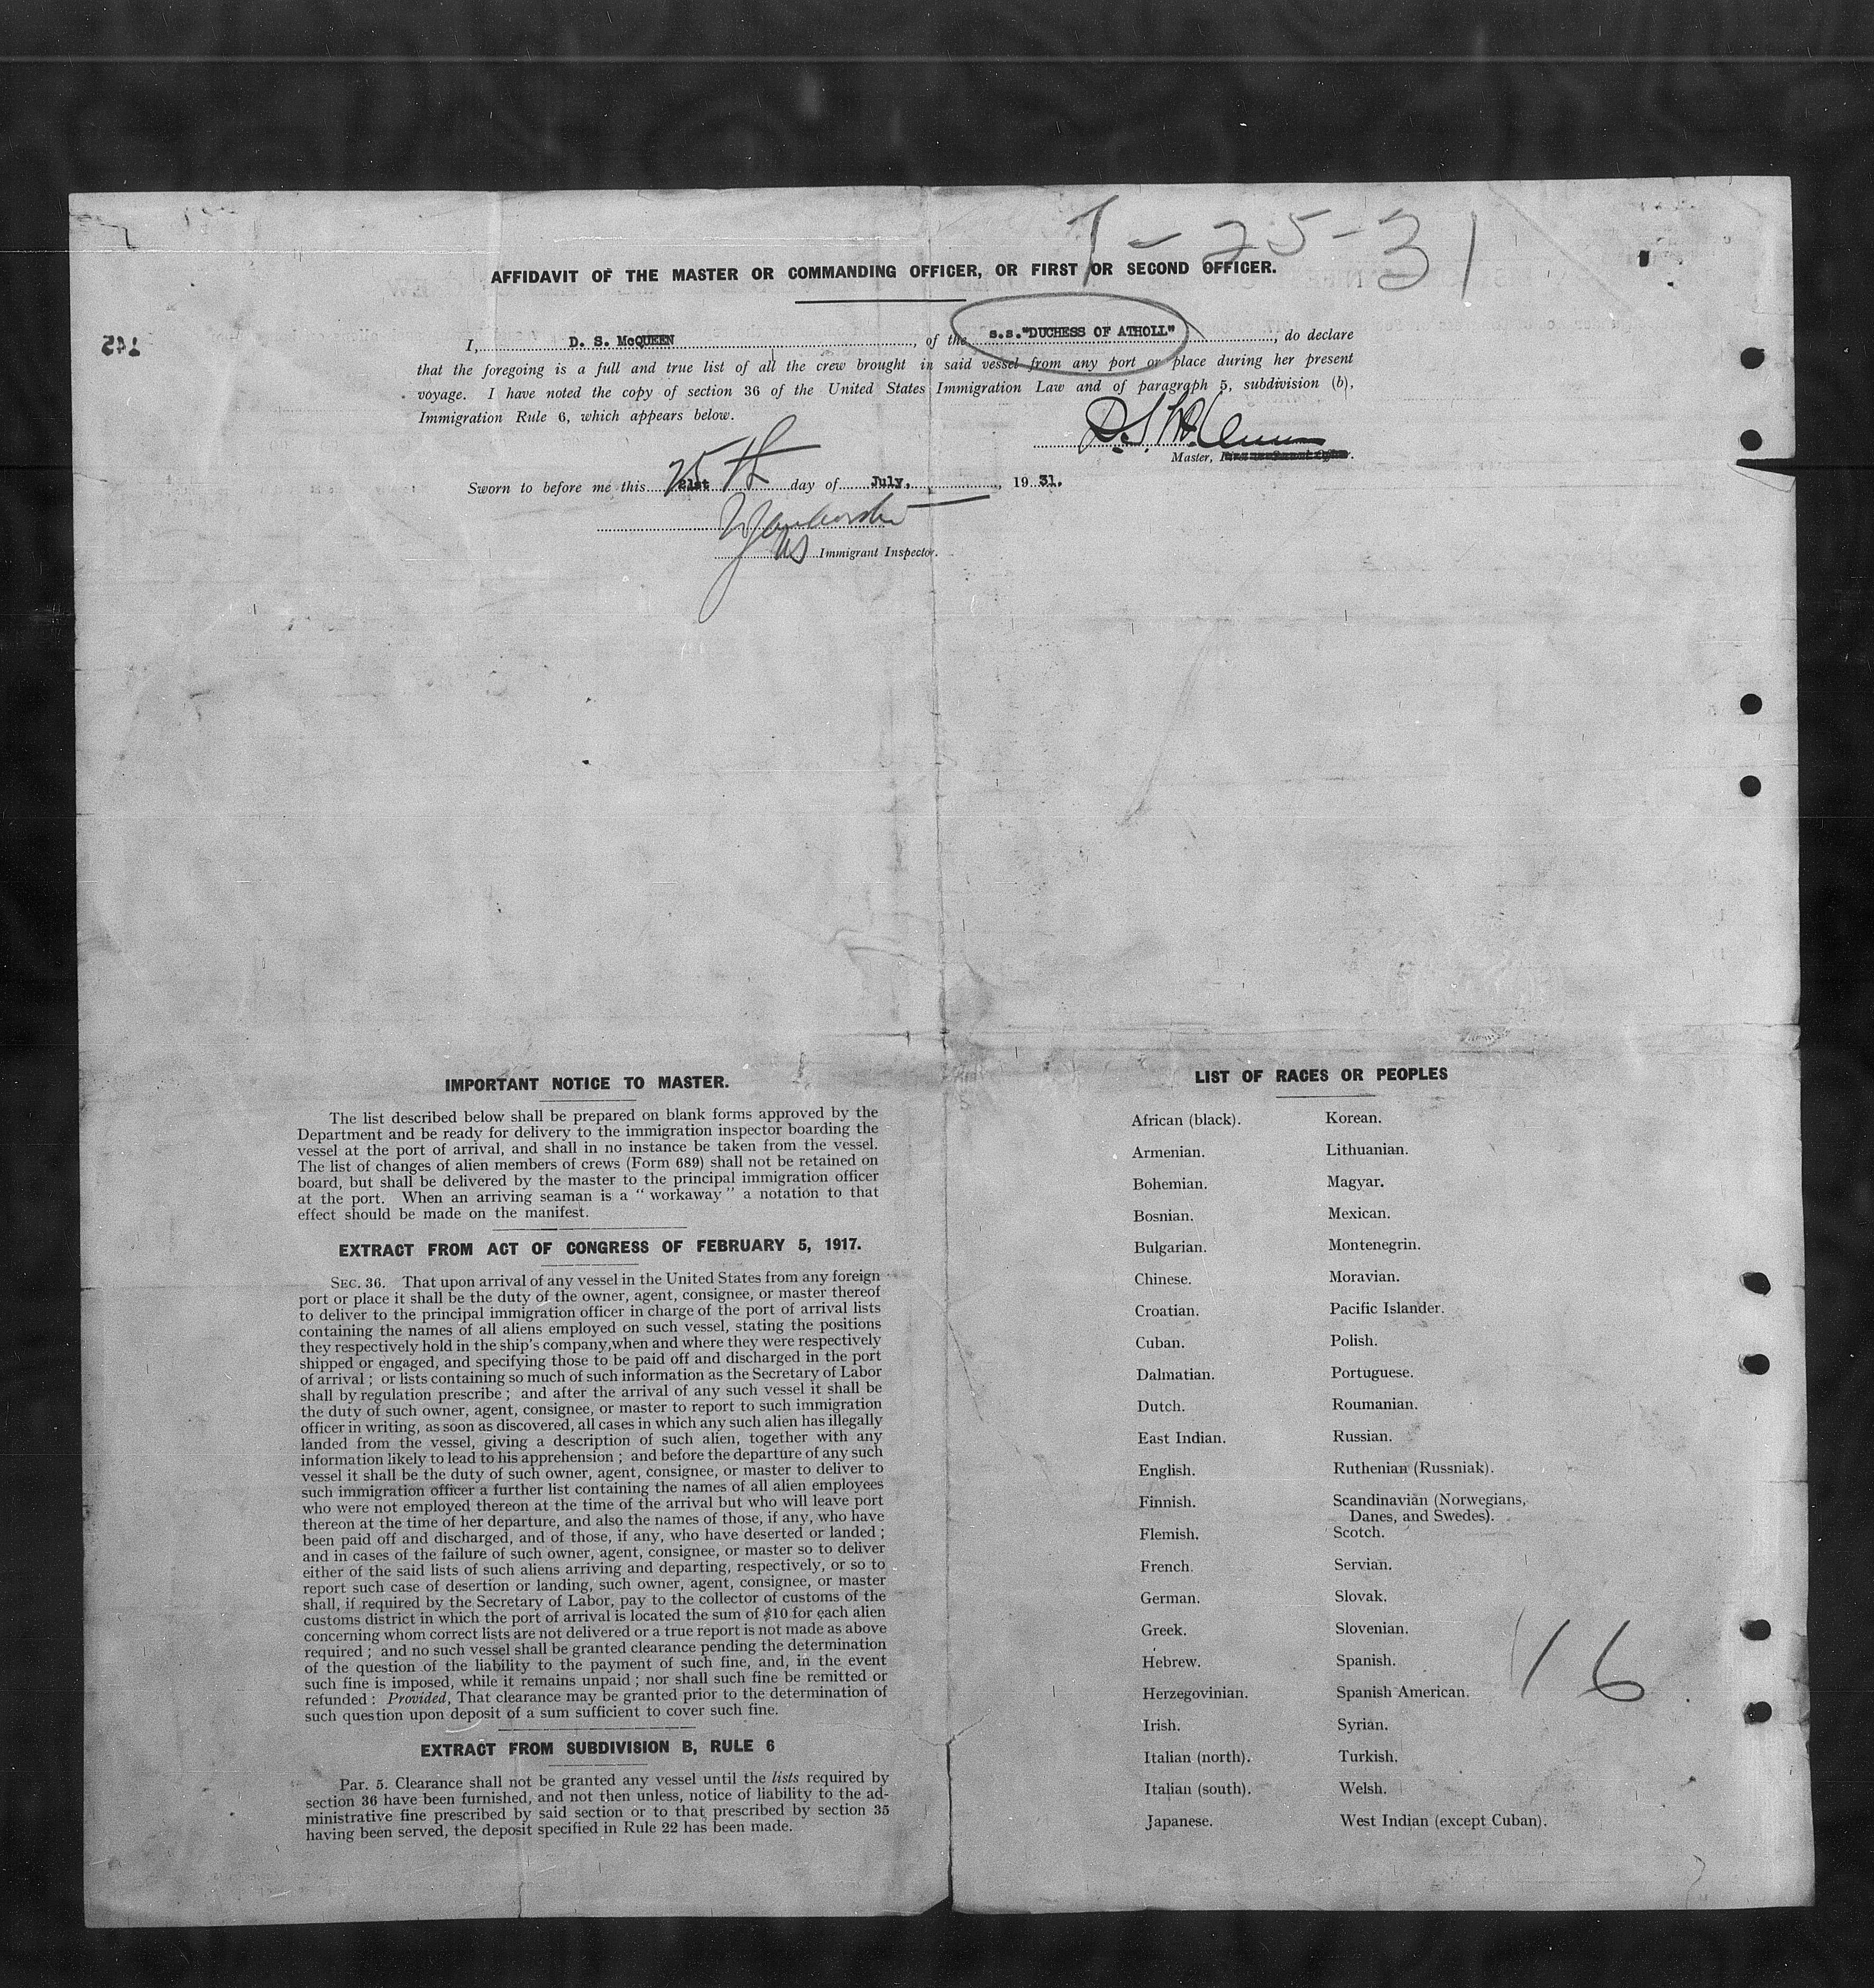 7-25-31
AFFIDAVIT OF THE MASTER OR COMMANDING OFFICER, OR FIRST OR SECOND OFFICER.
I, D. S. McQUEEN, of the s.s. "DUCHESS OF ATHOLL", do declare
that the foregoing is a full and true list of all the crew brought in said vessel from any port or place during her present
voyage. I have noted the copy of section 36 of the United States Immigration Law and of paragraph 5, subdivision (b),
Immigration Rule 6, which appears below.
D. S. McQueen
Master,
Sworn to before me this 21st 25th day of July, 1931.
US Immigrant Inspector.
IMPORTANT NOTICE TO MASTER.
The list described below shall be prepared on blank forms approved by the
Department and be ready for delivery to the immigration inspector boarding the
vessel at the port of arrival, and shall in no instance be taken from the vessel.
The list of changes of alien members of crews (Form 689) shall not be retained on
board, but shall be delivered by the master to the principal immigration officer
at the port. When an arriving seaman is a "workaway" a notation to that
effect should be made on the manifest.
EXTRACT FROM ACT OF CONGRESS OF FEBRUARY 5, 1917.
SEC. 36. That upon arrival of any vessel in the United States from any foreign
port or place it shall be the duty of the owner, agent, consignee, or master thereof
to deliver to the principal immigration officer in charge of the port of arrival lists
containing the names of all aliens employed on such vessel, stating the positions
they respectively hold in the ship's company,when and where they were respectively
shipped or engaged, and specifying those to be paid off and discharged in the port
of arrival; or lists containing so much of such information as the Secretary of Labor
shall by regulation prescribe; and after the arrival of any such vessel it shall be
the duty of such owner, agent, consignee, or master to report to such immigration
officer in writing, as soon as discovered, all cases in which any such alien has illegally
landed from the vessel, giving a description of such alien, together with any
information likely to lead to his apprehension; and before the departure of any such
vessel it shall be the duty of such owner, agent, consignee, or master to deliver to
such immigration officer a further list containing the names of all alien employees
who were not employed thereon at the time of the arrival but who will leave port
thereon at the time of her departure, and also the names of those, if any, who have
been paid off and discharged, and of those, if any, who have deserted or landed;
and in cases of the failure of such owner, agent, consignee, or master so to deliver
either of the said lists of such aliens arriving and departing, respectively, or so to
report such case of desertion or landing, such owner, agent, consignee, or master
shall, if required by the Secretary of Labor, pay to the collector of customs of the
customs district in which the port of arrival is located the sum of $10 for each alien
concerning whom correct lists are not delivered or a true report is not made as above
required; and no such vessel shall be granted clearance pending the determination
of the question of the liability to the payment of such fine, and, in the event
such fine is imposed, while it remains unpaid; nor shall such fine be remitted or
refunded: Provided, That clearance may be granted prior to the determination of
such question upon deposit of a sum sufficient to cover such fine.
EXTRACT FROM SUBDIVISION B, RULE 6
Par. 5. Clearance shall not be granted any vessel until the lists required by
section 36 have been furnished, and not then unless, notice of liability to the ad-
ministrative fine prescribed by said section or to that prescribed by section 35
having been served, the deposit specified in Rule 22 has been made.
LIST OF RACES OR PEOPLES
African (black).
Armenian.
Bohemian.
Bosnian.
Bulgarian.
Chinese.
Croatian.
Cuban.
Dalmatian.
Dutch.
East Indian.
English.
Finnish.
Flemish.
French.
German.
Greek.
Hebrew.
Herzegovinian.
Irish.
Italian (north).
Italian (south).
Japanese.
Korean.
Lithuanian.
Magyar.
Mexican.
Montenegrin.
Moravian.
Pacific Islander.
Polish.
Portuguese.
Roumanian.
Russian.
Ruthenian (Russniak).
Scandinavian (Norwegians,
Danes, and Swedes).
Scotch.
Servian.
Slovak.
Slovenian.
Spanish.
Spanish American.
Syrian.
Turkish.
Welsh.
West Indian (except Cuban).
16